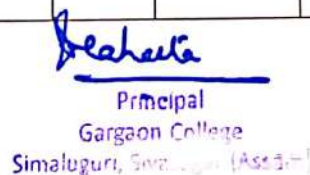 Principal
Gargaon College
Simaluguri, (Assam)